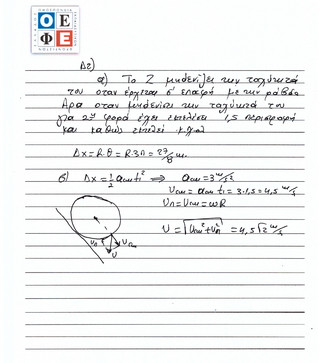 Ο Ε
Φ Ε
Δ2)
α) Το Ζ μηδενίζει την ταχύτητά
του όταν έρχεται σ' επαφή με την ράβδο
Άρα όταν μηδενίσει την ταχύτητά του
για 2η φορά έχει εκτελέσει 1,5 περιστροφή
και καθώς εκτελεί κ.χ.ο
Δx = R·θ = R·3π = 27/8 m.
β) Δx = 1/2 αcm t₁² ⇒ αcm = 3 m/s²
υcm = αcm t₁ = 3·1,5 = 4,5 m/s
υπ = υcm = ωR
υ = √(υcm² + υπ²) = 4,5√2 m/s
υπ υcm
υ